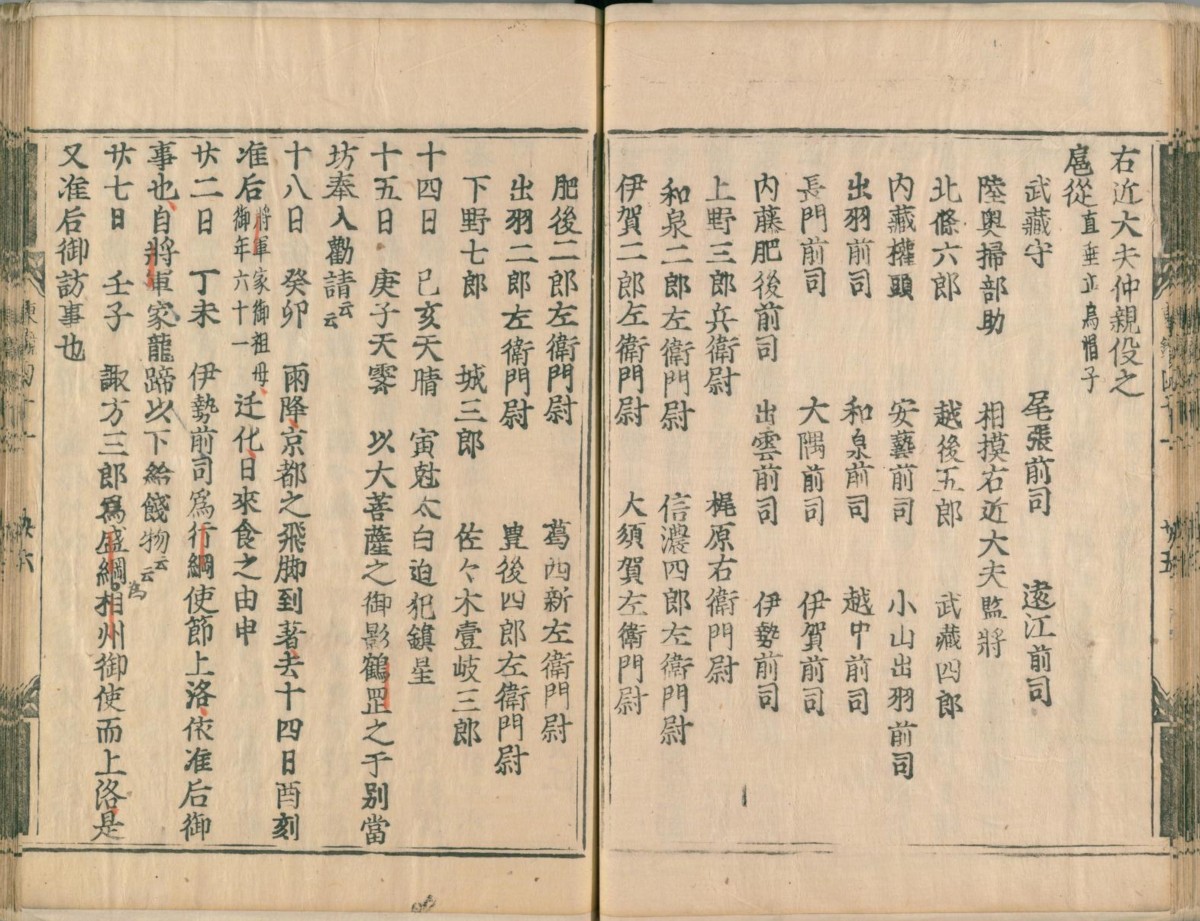 右近大夫仲親役之
扈從直垂立烏帽子
武藏守 尾張前司 遠江前司
陸奥掃部助 相摸右近大夫監將
北條六郎 越後五郎 武藏四郎
内藏權頭 安藝前司 小山出羽前司
出羽前司 和泉前司 越中前司
長門前司 大隅前司 伊賀前司
内藤肥後前司 出雲前司 伊勢前司
上野三郎兵衛尉 梶原右衛門尉
和泉二郎左衛門尉 信濃四郎左衛門尉
伊賀二郎左衛門尉 大須賀左衛門尉
肥後二郎左衛門尉 葛西新左衛門尉
出羽二郎左衛門尉 豊後四郎左衛門尉
下野七郎 城三郎 佐々木壹岐三郎
十四日 己亥天晴 寅尅太白迫犯鎮星
十五日 庚子天霽 以大菩薩之御影鶴罡之于別當
坊奉入勸請云云
十八日 癸卯 雨降京都之飛脚到著去十四日酉刻
准后將軍家御祖母御年六十一迁化日來食之由申
廿二日 丁未 伊勢前司爲行綱使節上洛依准后御
事也自將軍家龍蹄以下給餞物云云
廿七日 壬子 諏方三郎爲盛綱爲相州御使而上洛是
又准后御訪事也